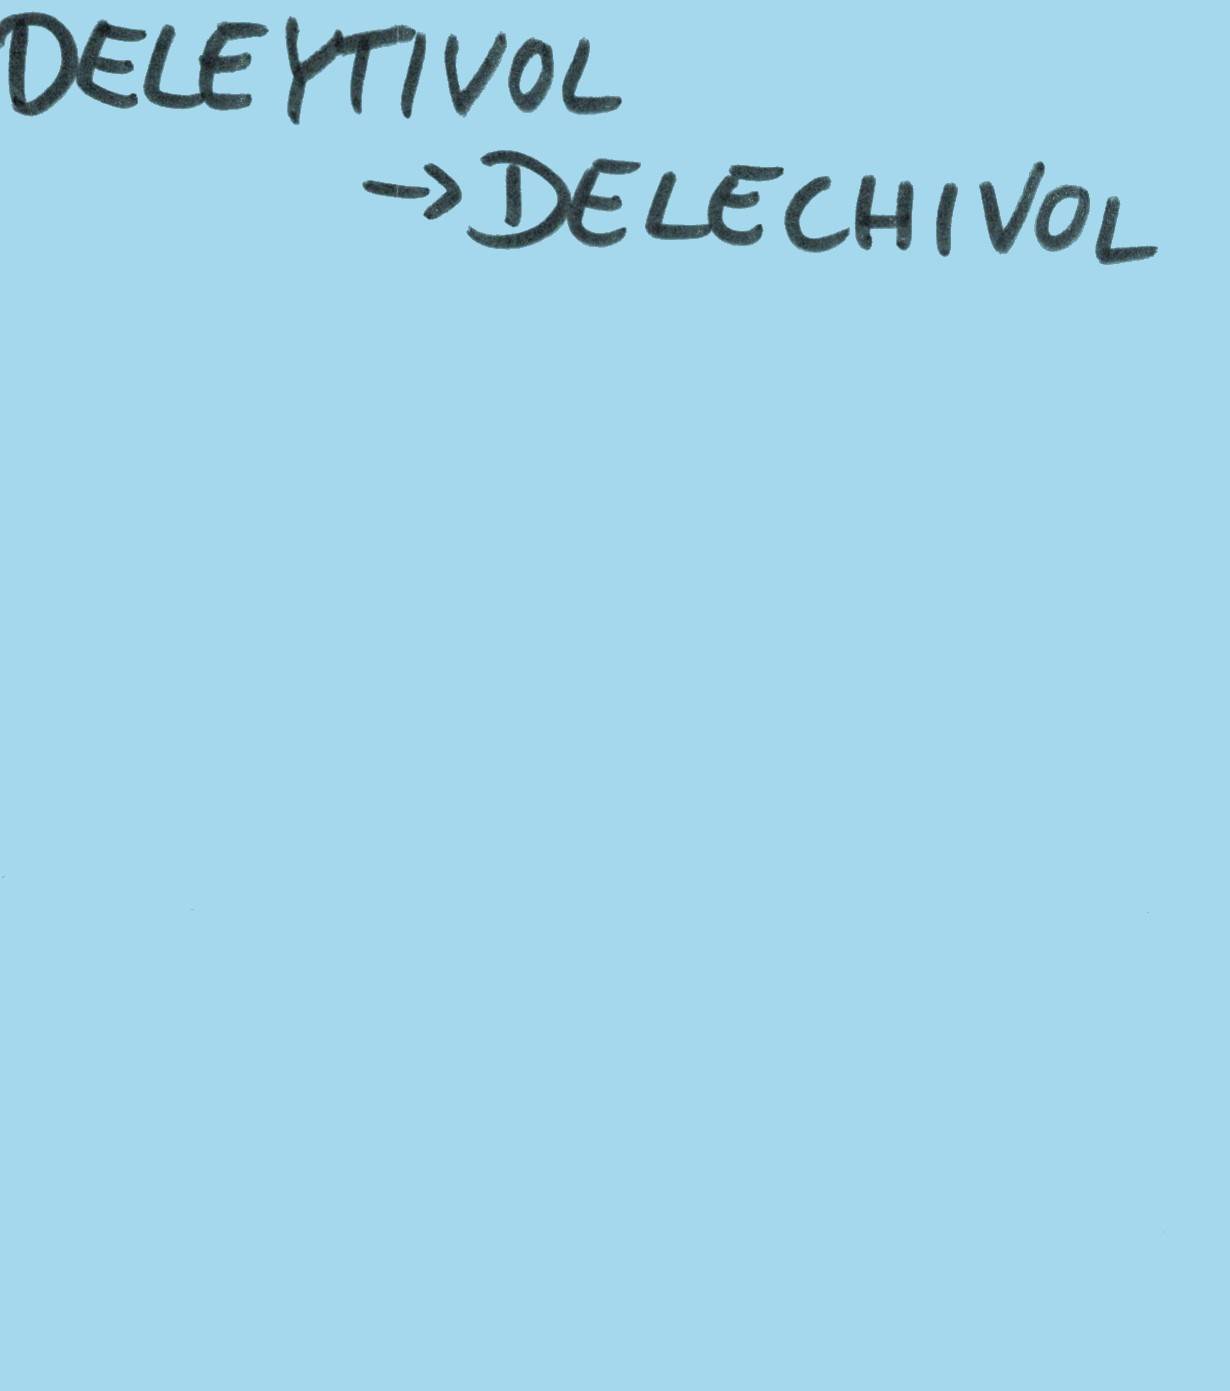 DELEYTIVOL
→ DELECHIVOL